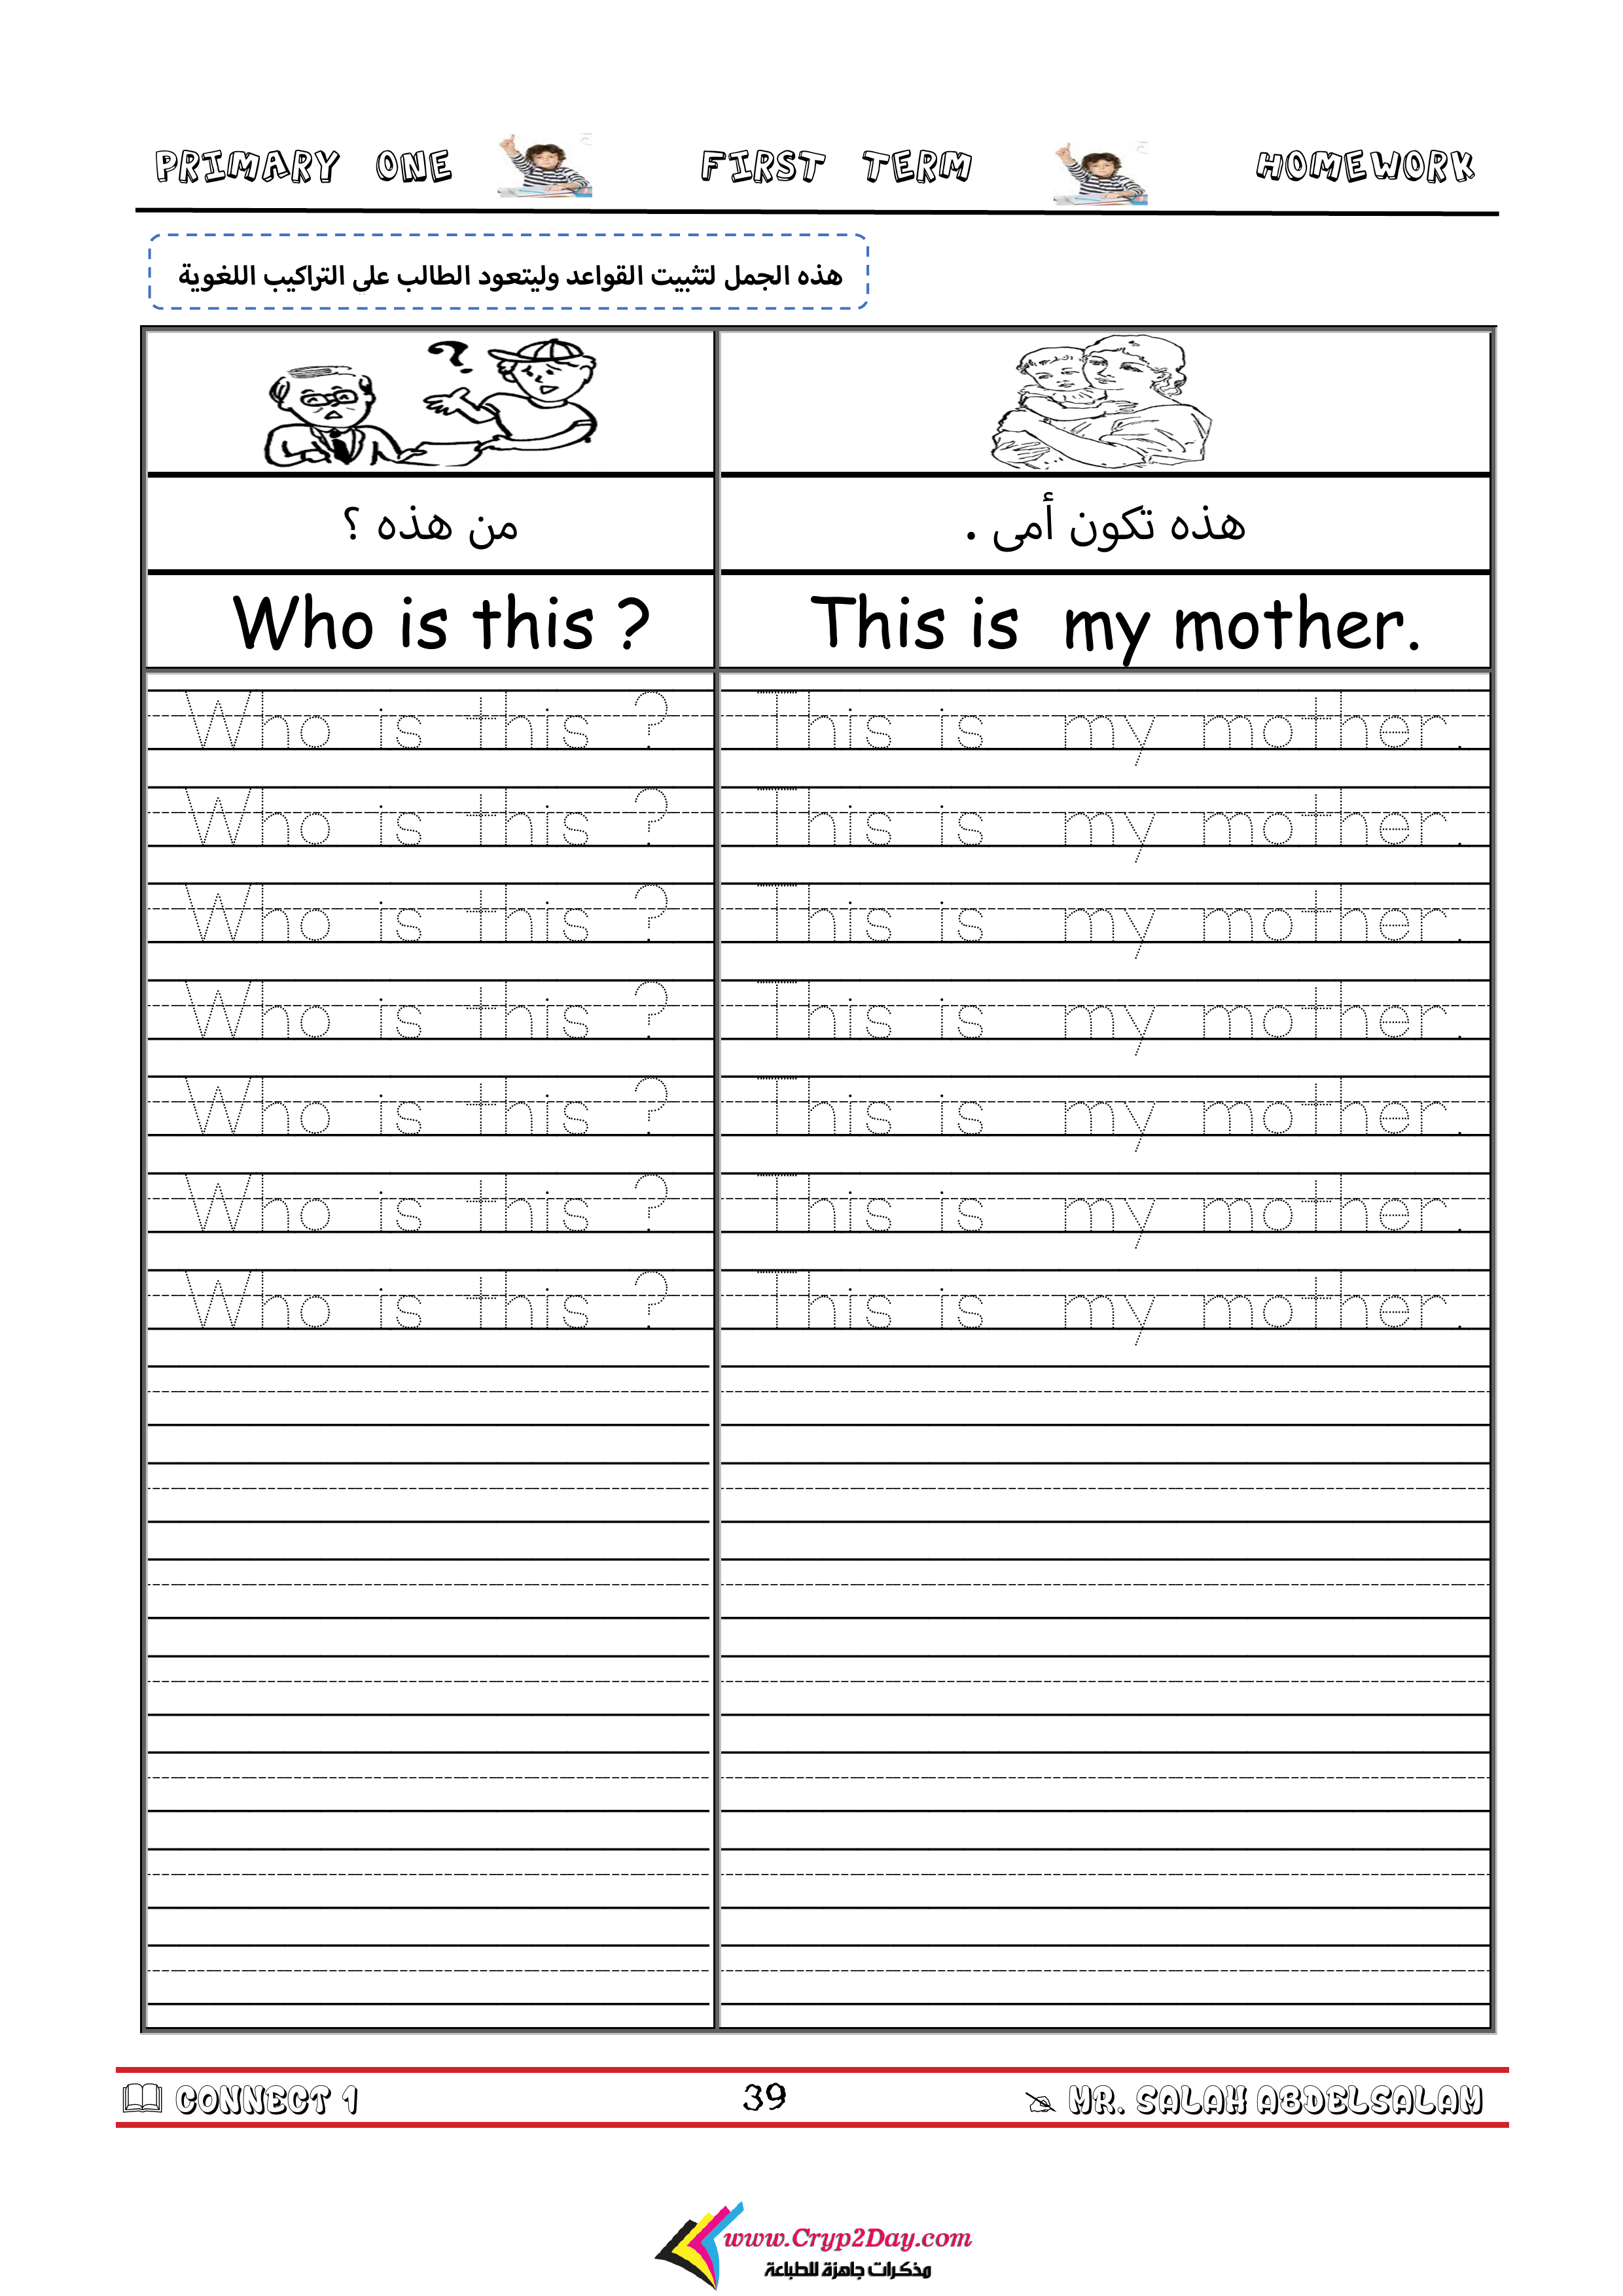 PRIMARY ONE FIRST TERM HOMEWORK
هذه الجمل لتثبيت القواعد وليتعود الطالب علي التراكيب اللغوية
من هذه ؟ هذه تكون أمى .
Who is this ? This is my mother.
Who is this ? This is my mother.
Who is this ? This is my mother.
Who is this ? This is my mother.
Who is this ? This is my mother.
Who is this ? This is my mother.
Who is this ? This is my mother.
Who is this ? This is my mother.
CONNECT 1 39 MR. SALAH ABDELSALAM
www.Cryp2Day.com
مذكرات جاهزة للطباعة